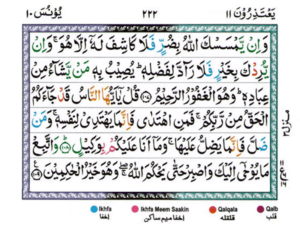 يَعْتَذِرُوْنَ ١١ ٢٢٢ يُوْنُسَ ١٠
وَاِنْ يَّمْسَسْكَ اللّٰهُ بِضُرٍّ فَلَا كَاشِفَ لَهٗۤ اِلَّا هُوَ ۚ وَاِنْ
يُّرِدْكَ بِخَيْرٍ فَلَا رَآدَّ لِفَضْلِهٖ ؕ يُصِيْبُ بِهٖ مَنْ يَّشَآءُ مِنْ
عِبَادِهٖ ؕ وَهُوَ الْغَفُوْرُ الرَّحِيْمُ ﴿۱۰۷﴾ قُلْ يٰۤاَيُّهَا النَّاسُ قَدْ جَآءَكُمُ
الْحَقُّ مِنْ رَّبِّكُمْ ۚ فَمَنِ اهْتَدٰى فَاِنَّمَا يَهْتَدِيْ لِنَفْسِهٖ ۚ وَمَنْ
ضَلَّ فَاِنَّمَا يَضِلُّ عَلَيْهَا ۚ وَمَاۤ اَنَا عَلَيْكُمْ بِوَكِيْلٍ ﴿۱۰۸﴾ وَاتَّبِعْ
مَا يُوْحٰۤى اِلَيْكَ وَاصْبِرْ حَتّٰى يَحْكُمَ اللّٰهُ ۚ وَهُوَ خَيْرُ الْحٰكِمِيْنَ ﴿۱۰۹﴾
منزل ٣
Ikhfa Ikhfa Meem Saakin Qalqala Qalb
اخفا اخفا میم ساکن قلقلہ قلب